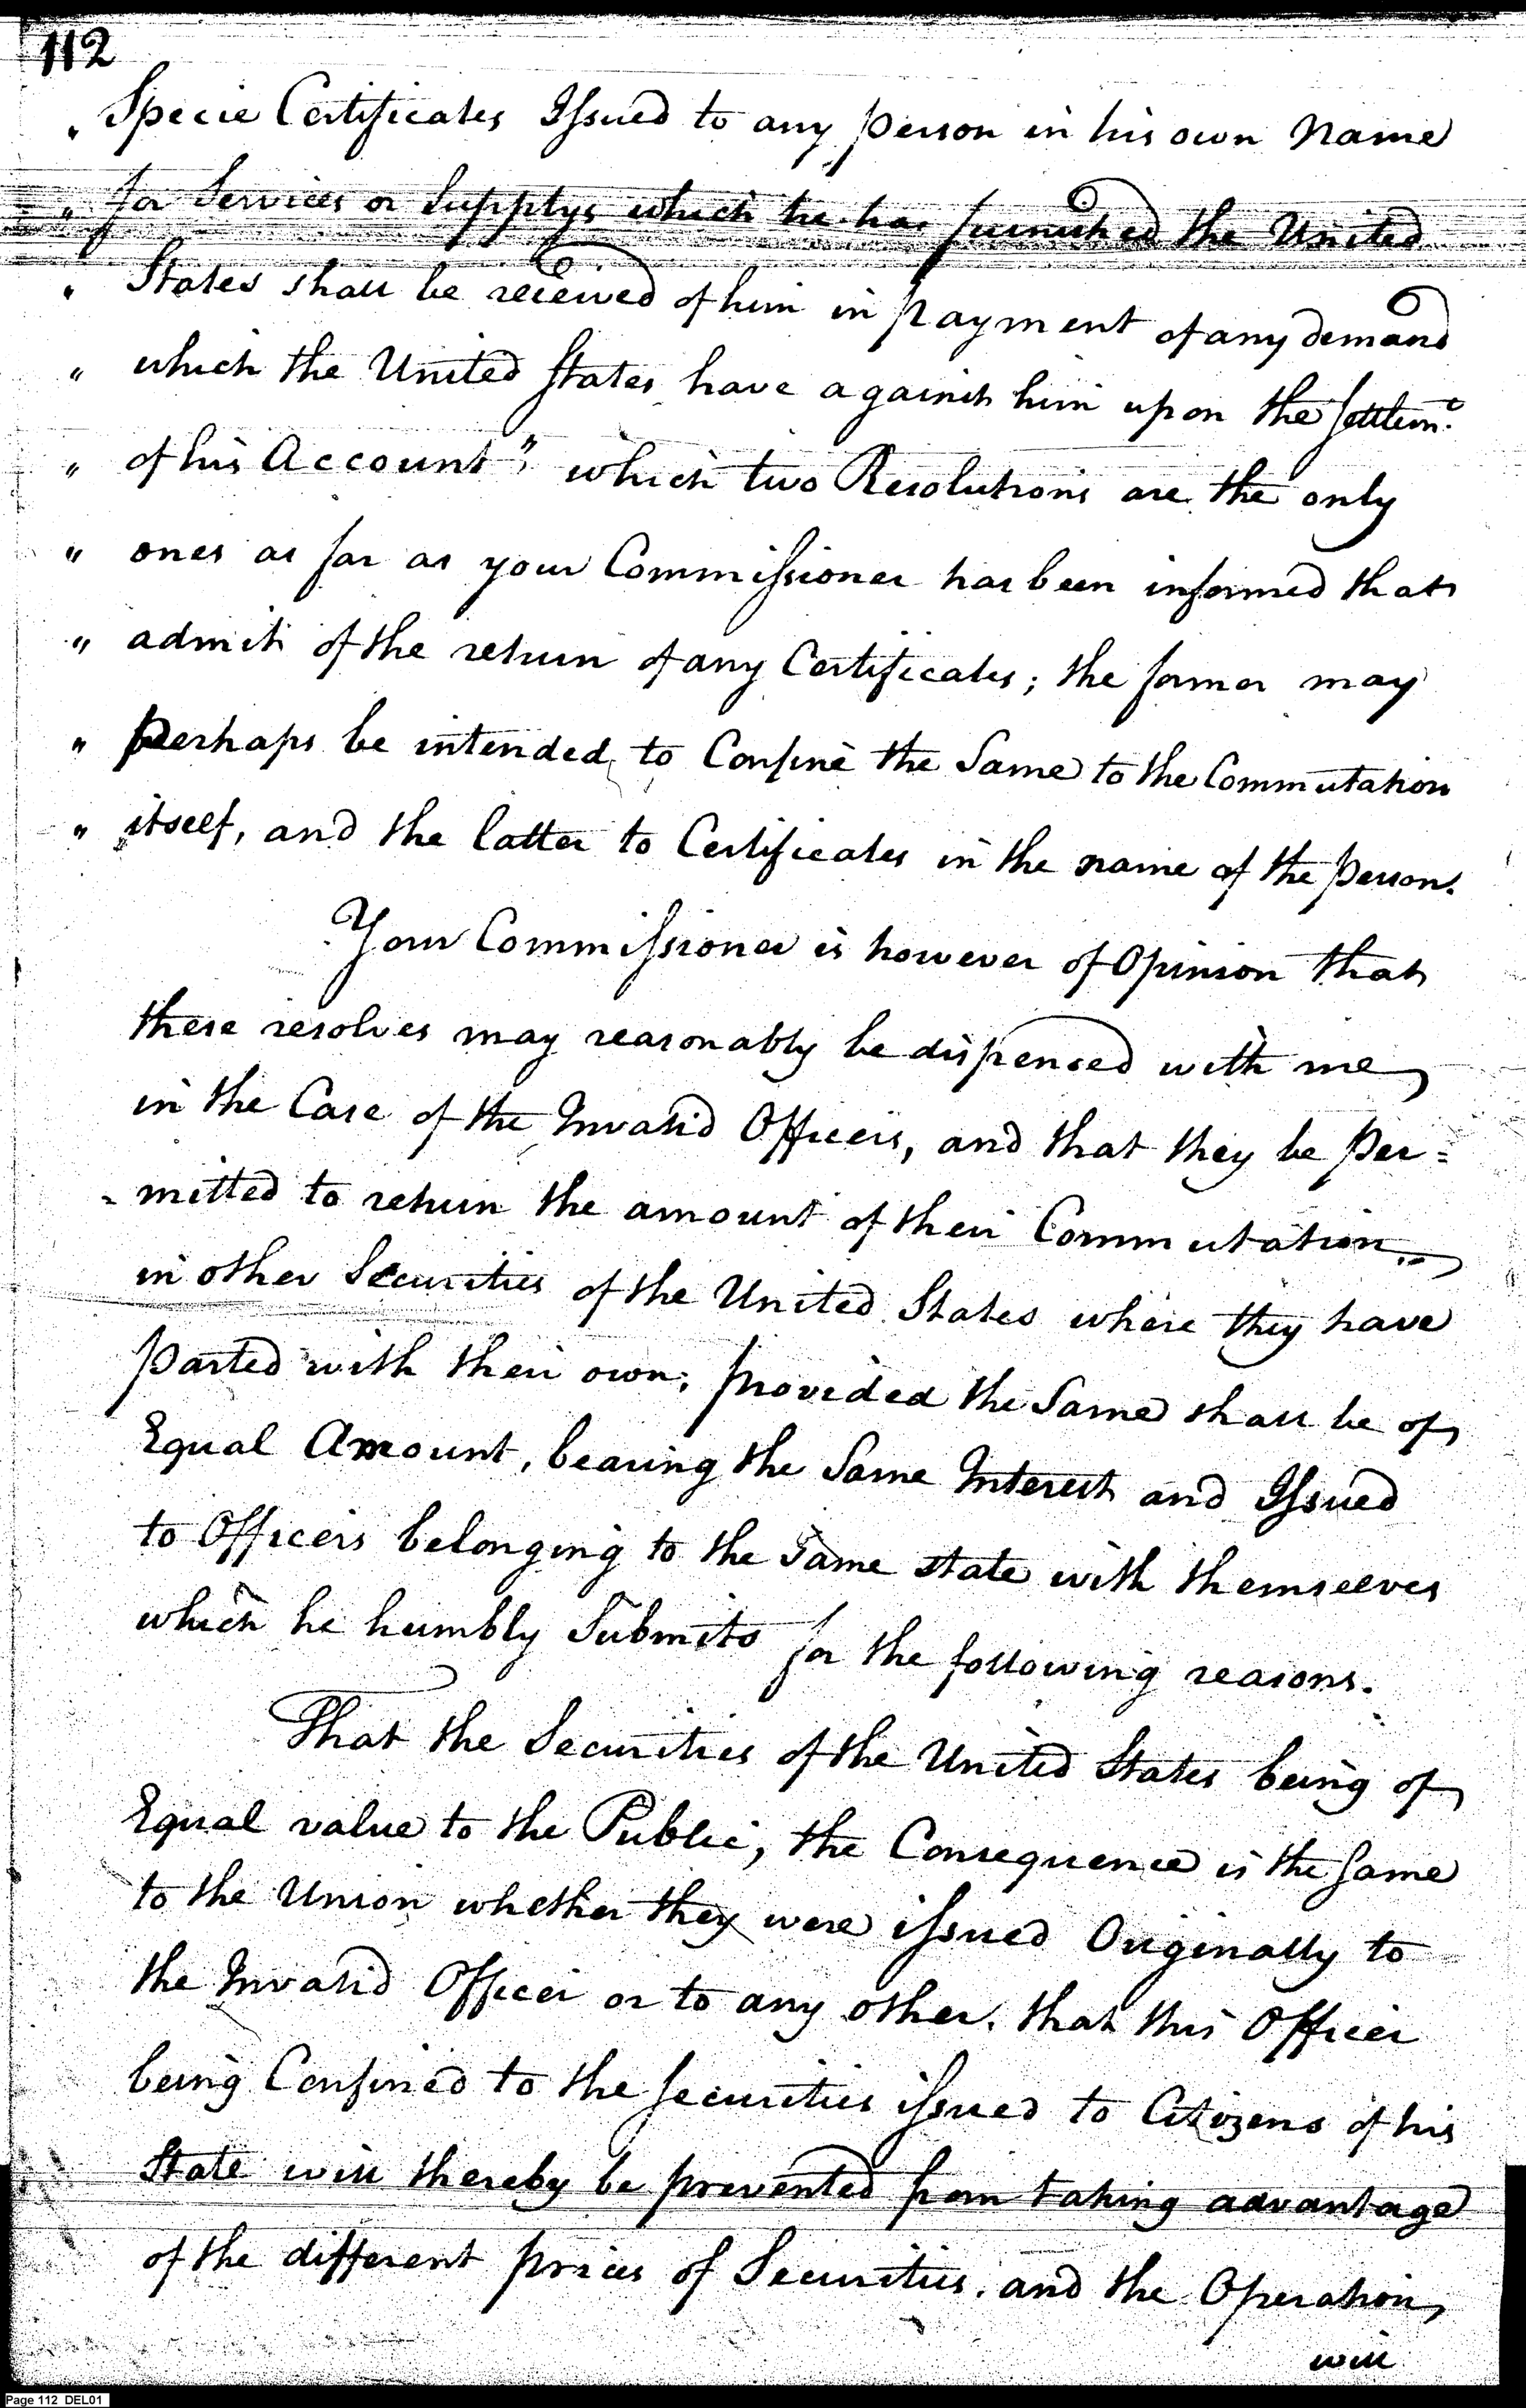 112
" Specie Certificates Issued to any person in his own Name
" for Services or Supplys which he has furnished the United
" States shall be received of him in payment of any demand
" which the United States have against him upon the Settlemt.
" of his Account", which two Resolutions are the only
" ones as far as your Commissioner has been informed that
" admit of the return of any Certificates; the former may
" perhaps be intended to Confine the Same to the Commutation
" itself, and the latter to Certificates in the name of the person.
Your Commissioner is however of Opinion that
these resolves may reasonably be dispensed with me
in the Case of the Invalid Officers, and that they be Per=
= mitted to return the amount of their Commutation
in other Securities of the United States where they have
parted with their own; provided the Same shall be of
Equal Amount, bearing the Same Interest and Issued
to Officers belonging to the Same state with themselves
which he humbly Submits for the following reasons.
That the Securities of the United States being of
Equal value to the Public, the Consequence is the same
to the Union whether they were issued Originally to
the Invalid Officer or to any other. that this Officer
being Confined to the securities issued to Citizens of his
State will thereby be prevented from taking advantage
of the different prices of Securities. and the Operation
will
Page 112 DEL01